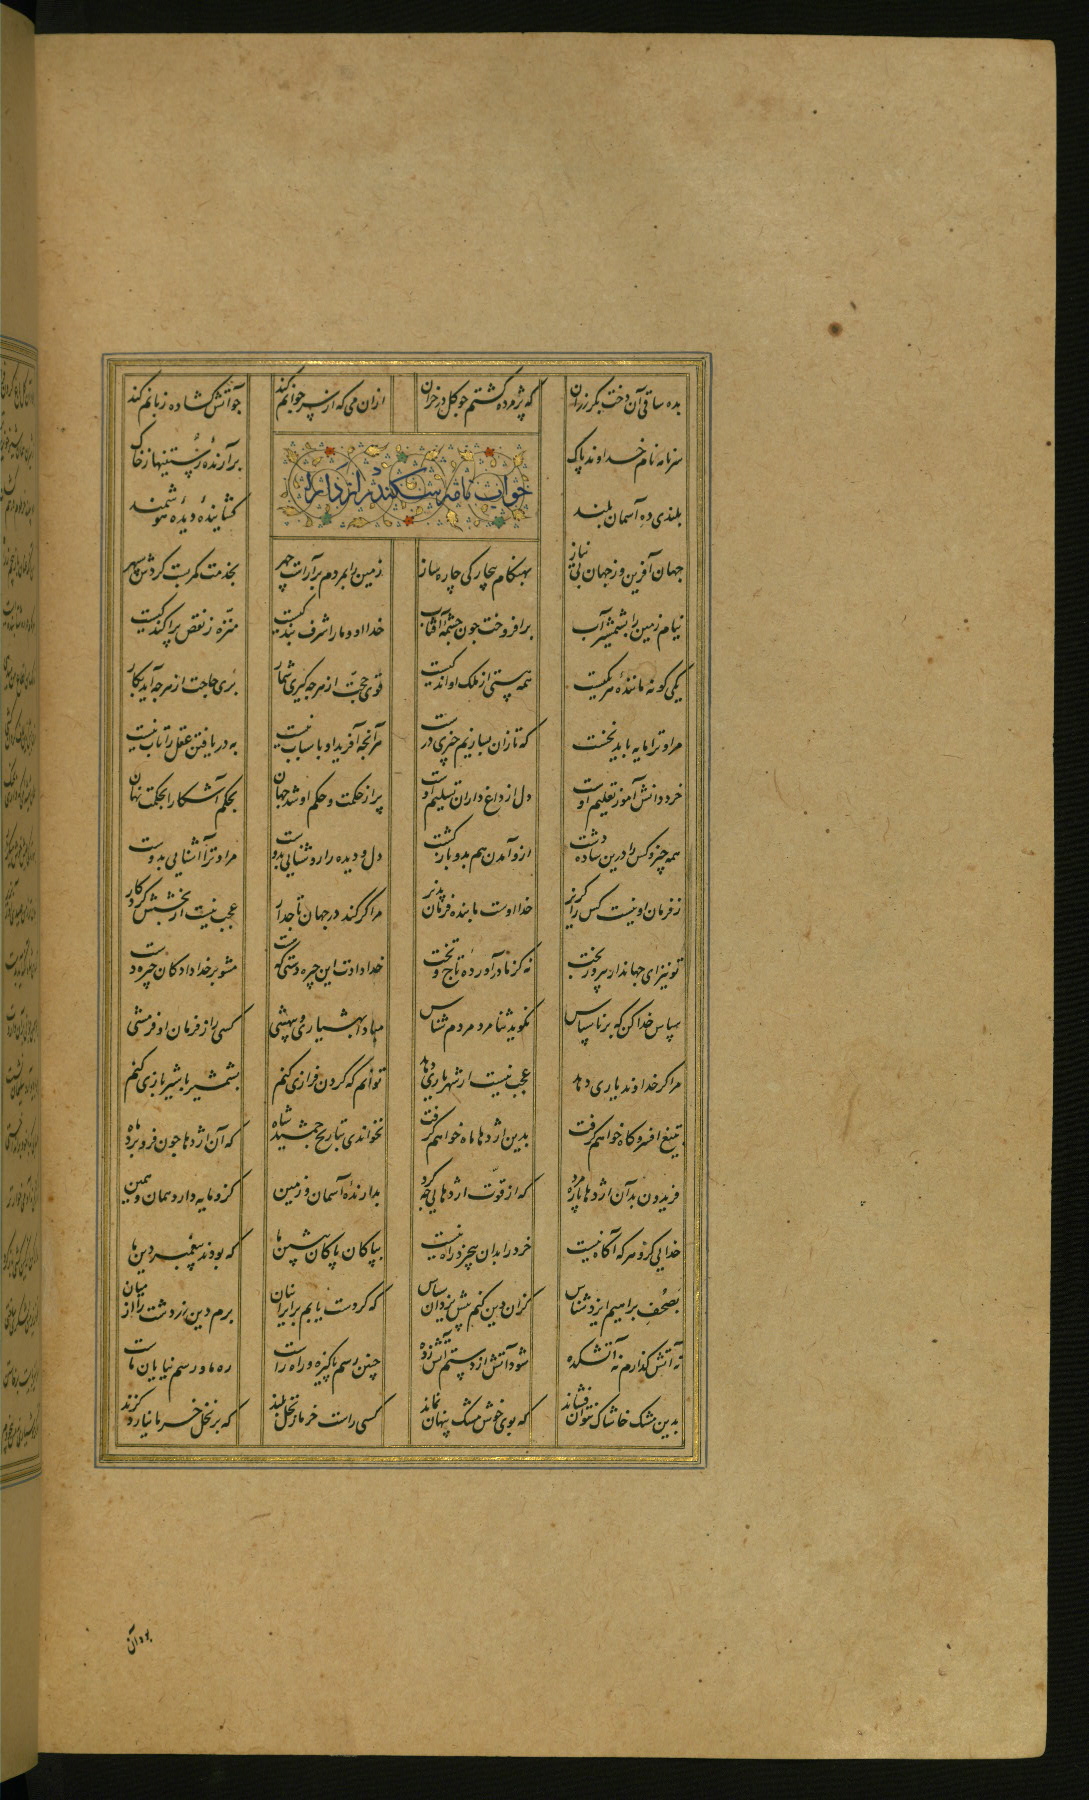 بده ساقی آن دخت بکر رزان که پژمرده گشتم چو گل در خزان ازان می که از سر جوانم کند چو آتش گشاده زبانم کند
سر نامه نام خداوند پاک برآرندهٔ رستنیها ز خاک
جواب نامه سکندر از دارا
بلندی ده آسمان بلند گشایندهٔ دیدهٔ هوشمند
جهان آفرین وز جهان بی نیاز بهنگام بیچارگی چاره ساز زمین را بمردم برآراست چهر بخدمت کمر بست گردش سپهر
نیام زمین را بشمشیر آب برافروخت چون چشمهٔ آفتاب خدا او و ما را شرف بندگیست منزّه ز نقص پراکندگیست
یکی کو نه مانندهٔ هر یکیست همه هستی از ملک او اندکیست قوی حجت از هرچه گیری شمار بری حاجت از هرچه آید بکار
مر او ترا مایه باید نخست که تا زان بسازیم چیزی درست هرآنچه آفرید او باسباب نیست به دریافتن عقل را تاب نیست
خرد دانش آموز تعلیم اوست دل از داغ داران تسلیم اوست پر از حکمت و حکم او شد جهان بحکم آشکارا بحکمت نهان
همه چیز و کس را درین ساده دشت ازو آمدن هم بدو بازگشت دل و دیده را روشنایی بدوست مرا و ترا آشنایی بدوست
ز فرمان او نیست کس را گزیر خدا اوست ما بنده فرمان پذیر مرا گر کند در جهان تاجدار عجب نیست از بخشش کردگار
تو نیز ای جهاندار پیروزبخت نه کز مادر آورده تاج و تخت خدا دادت این چیره دستی که هست مشو بر خدادادگان چیره دست
سپاس خدا کن که بر ناسپاس نگوید ثنا مرد مردم شناس مبادا بهشیاری و بیهشی کسی را ز فرمان او فرمشی
مرا گر خداوند یاری دهد عجب نیست ار شهریاری دهد توانم که گردن فرازی کنم بشمشیر با شیر بازی کنم
بتیغ افسر و گاه خواهم گرفت بدین اژدها ماه خواهم گرفت نخواندی بتاریخ جمشید شاه که آن اژدها چون فرو برد ماه
فریدون بدان اژدها پاره مرد که از قوّت اژدهایی چه کرد بدارندهٔ آسمان و زمین کزو مایه دارد همان و همین
خدایی کزو هر که آگاه نیست خرد را بدان بی‌خرد راه نیست بپاکان پاکان پیشین‌ ما که بودند پیغمبر دین ما
بصحف براهیم ایزد شناس کزان دین کنم پیش یزدان سپاس که گر دست یابم بر ایرانیان برم دین زردشت را از میان
نه آتش گذارم نه آتشکده شود آتش از دستم آتش زده چنین رسم پاکیزه و راه راست ره ما و رسم نیایان ماست
بدین مشک خاشاک نتوان فشاند که بوی خوش مشک پنهان نماند کسی راست خرما ز نخل بلند که بر نخل خرما نیارد گزند